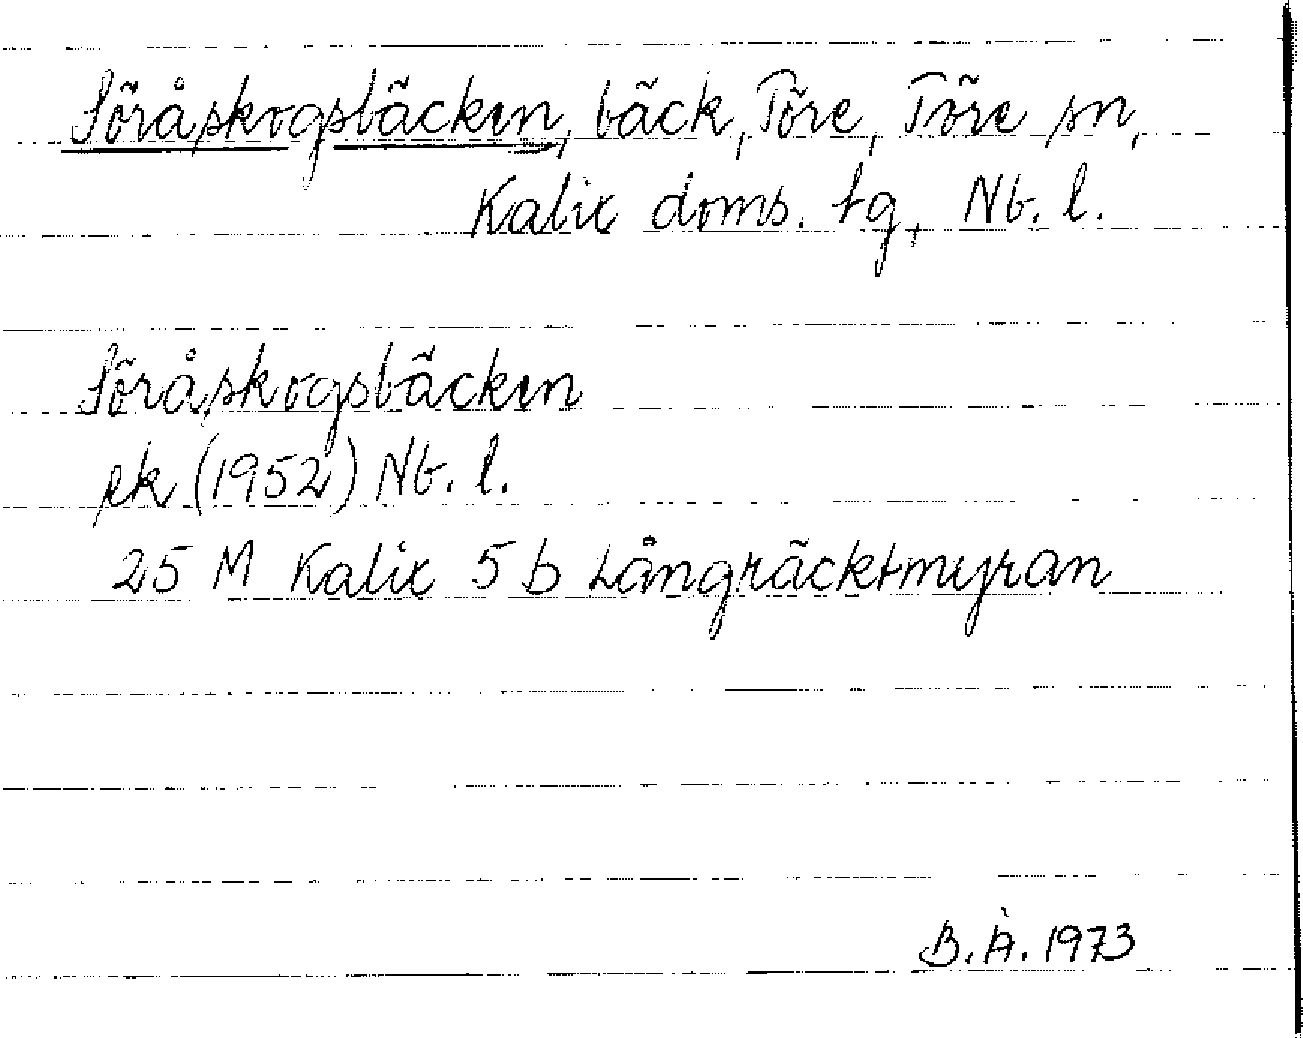 Söråskogsbäcken, bäck, Töre, Töre sn,
Kalix doms. tg, Nb. l.
Söråskogsbäcken
pk (1952) Nb. l.
25 M Kalix 5 b Långräcktmyran
B.Å. 1973